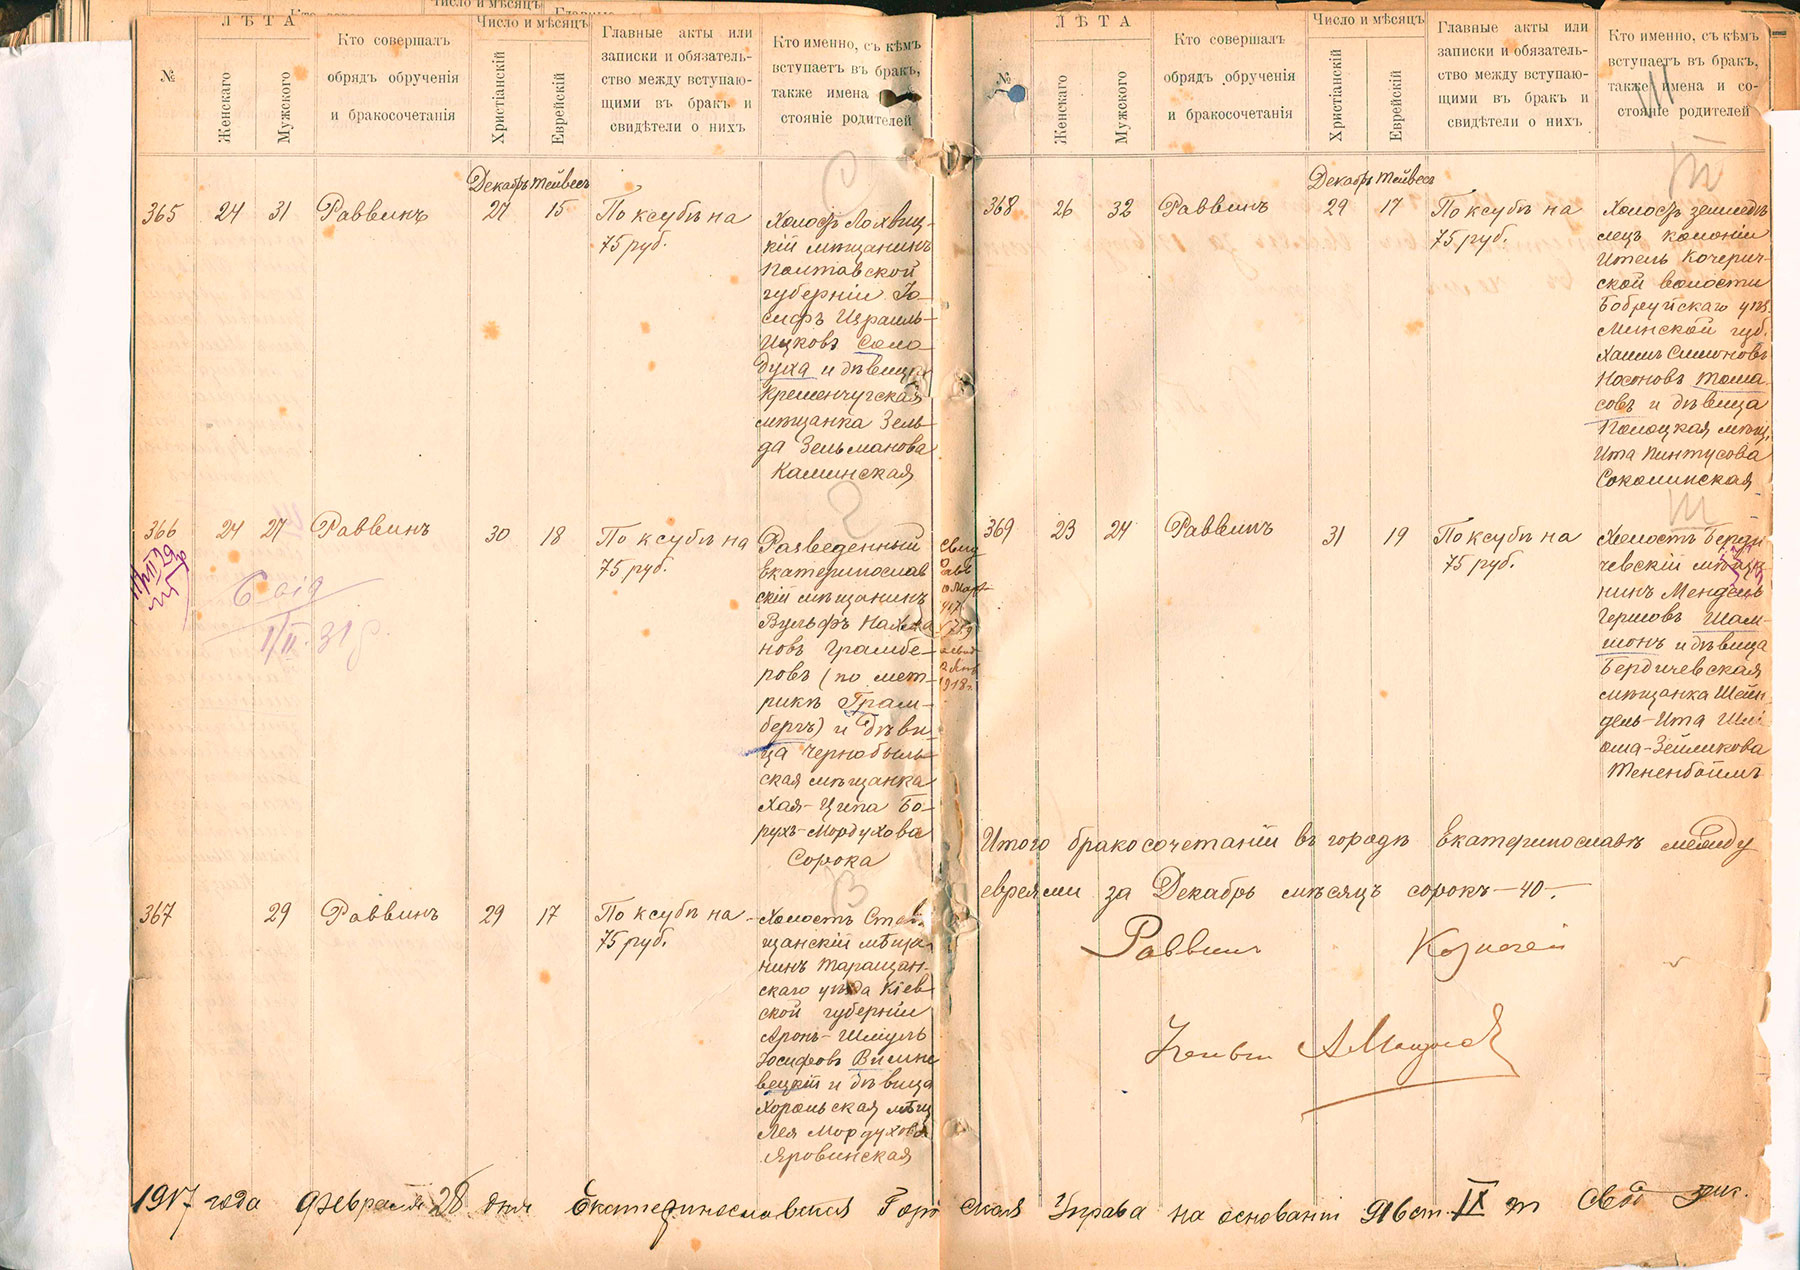 №
ЛѢТА
Женскаго
Мужского
Кто совершалъ
обрядъ обрученія
и бракосочетанія
Число и мѣсяцъ
Христіанскій
Еврейскій
Главные акты или
записки и обязатель-
ство между вступаю-
щими въ бракъ и
свидѣтели о нихъ
Кто именно, съ кѣмъ
вступаетъ въ бракъ,
также имена
стояніе родителей
Декабрь Тейвесъ
365 24 31 Раввинъ 27 15 По ксубѣ на
75 руб.
Холост Лохвиц-
кій мѣщанинъ
Полтавской
губерніи Іо-
сифъ Израиль-
Ицковъ Соло
духа и дѣвица
Кременчугская
мѣщанка Зель-
да Зельманова
Каминская
366 24 27 Раввинъ 30 18 По ксубѣ на
75 руб.
Разведенный
Екатеринослав
скій мѣщанинъ
Вульфъ Нахма
новъ Грамбе-
ровъ (по мет-
рикѣ Грам-
бергъ) и дѣви-
ца Чернобыль-
ская мѣщанка
Хая-Ципа Бо-
рухъ-Мордухова
Сорока
1918 г.
367 29 Раввинъ 29 17 По ксубѣ на
75 руб.
Холостъ Став-
щанскій мѣща
нинъ Таращан-
скаго уѣзда Кіев
ской губерніи
Аронъ-Шмуль
Іосифовъ Вишне
вецкій и дѣвица
Хорольская мѣщ
Лея Мордухова
Яровинская
№
ЛѢТА
Женскаго
Мужского
Кто совершалъ
обрядъ обрученія
и бракосочетанія
Число и мѣсяцъ
Христіанскій
Еврейскій
Главные акты или
записки и обязатель-
ство между вступаю-
щими въ бракъ и
свидѣтели о нихъ
Кто именно, съ кѣмъ
вступаетъ въ бракъ,
также имена и со-
стояніе родителей
III
III
Декабрь Тейвесъ
368 26 32 Раввинъ 29 17 По ксубѣ на
75 руб.
Холостъ земледѣ
лецъ колоніи
Ител﻿ь Кочерич-
ской волости
Бобруйскаго уѣз.
Минской губ.
Хаимъ Симоновъ
Носоновъ Тома
совъ и дѣвица
Полоцкая мѣщ.
Ита Пинтусова
Соколинская
III
369 23 24 Раввинъ 31 19 По ксубѣ на
75 руб.
Холостъ Берди
чевскій мѣща
нинъ Мендель
Гершовъ Шам-
шонъ и дѣвица
Бердичевская
мѣщанка Шейн
дель-Ита Шлі
ома-Зейликова
Тененбоймъ
Итого бракосочетаній въ городѣ Екатеринославѣ между
евреями за Декабрь мѣсяцъ сорокъ-40-.
Раввинъ
1917 года февраля 28 дня Екатеринославская Городская Управа на основаніи 916 ст. IX т Свод